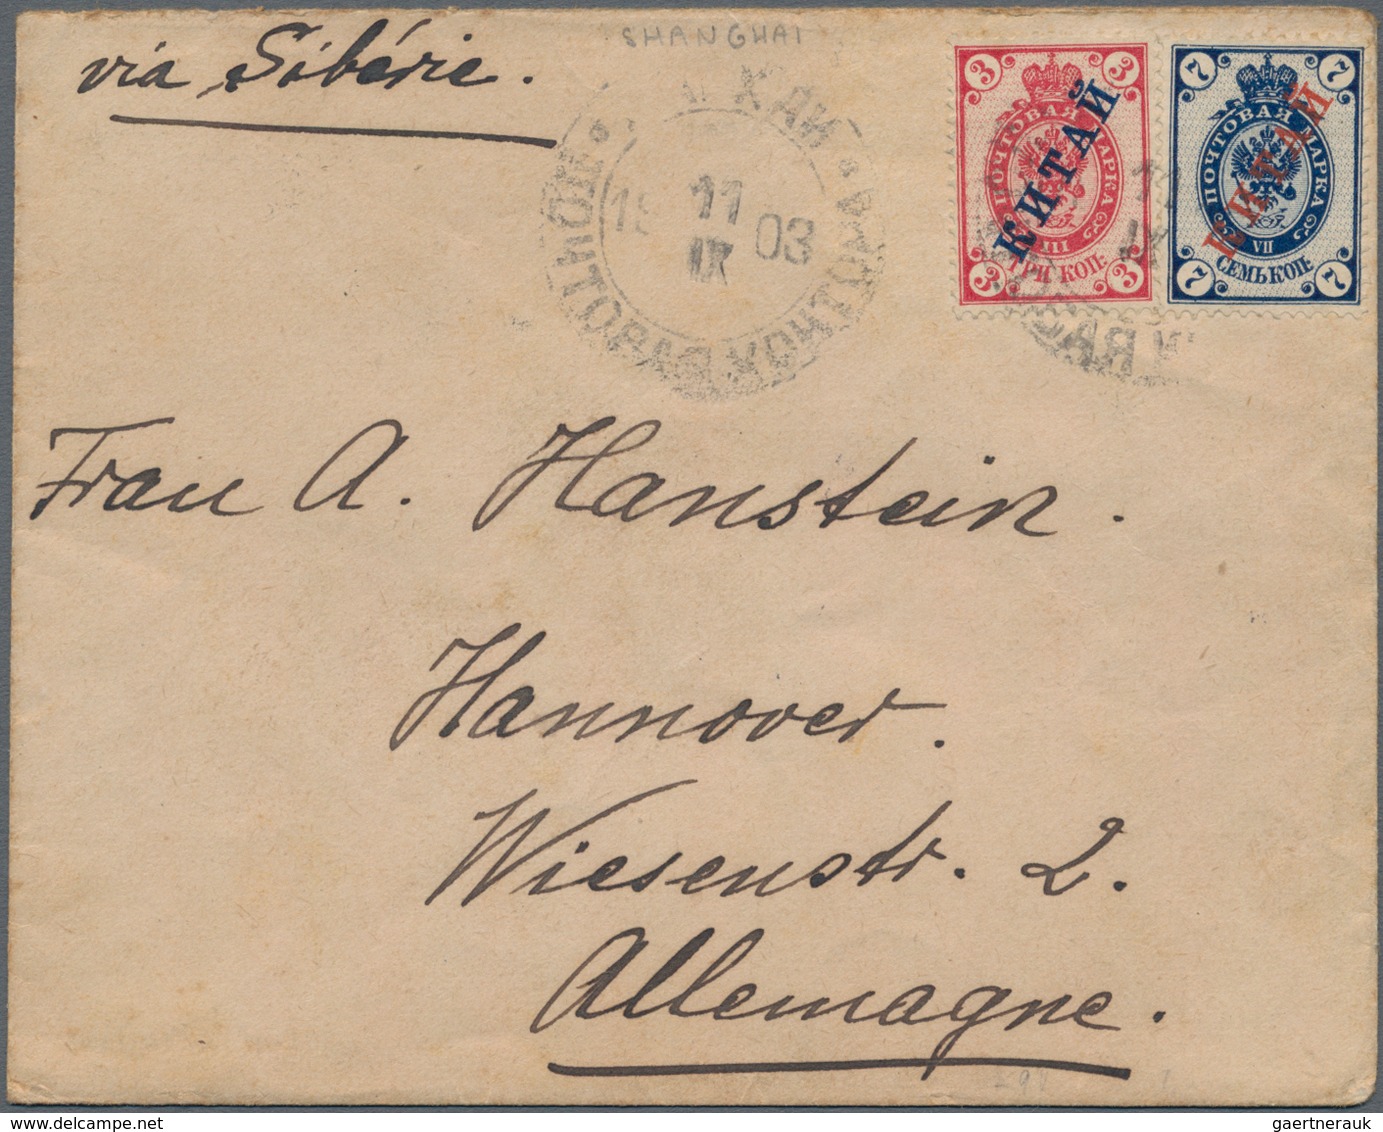 via Sibérie.
SHANGHAI
ПОЧТОВАЯ КОНТОРА
11
IX
03
3 3
ПОЧТОВАЯ МАРКА
КИТАЙ
III
ТРИ КОП.
3 3
7 7
ПОЧТОВАЯ МАРКА
КИТАЙ
VII
СЕМЬ КОП.
7 7
11
IX
Frau A. Hanstein.
Hannover.
Wiesenstr. 2.
Allemagne.
gaertnerauk